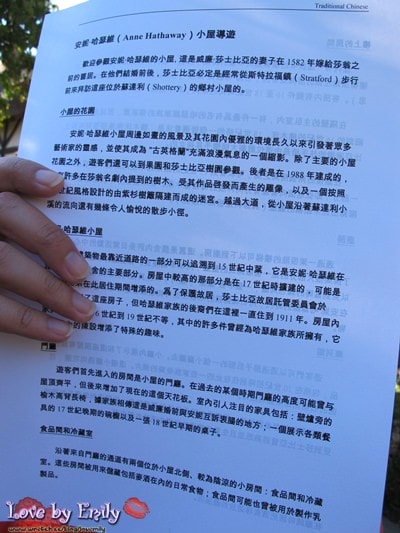 Traditional Chinese
安妮·哈瑟維（Anne Hathaway）小屋導遊
歡迎參觀安妮·哈瑟維的小屋，這是威廉·莎士比亞的妻子在 1582 年嫁給莎翁之
前的舊居。在他們結婚前後，莎士比亞必定是經常從斯特拉福鎮（Stratford）步行
前來拜訪這座位於蘇達利（Shottery）的鄉村小屋的。
小屋的花園
安妮·哈瑟維小屋周邊如畫的風景及其花園內優雅的環境長久以來引發著眾多
藝術家的靈感，並使其成為"古英格蘭"充滿浪漫氣息的一個縮影。除了主要的小屋
花園之外，遊客們還可以到果園和莎士比亞樹園參觀。後者是在 1988 年建成的，
許多在莎翁名劇內提到的樹木。受其作品啓發而產生的雕像，以及一個按照
世紀風格設計的由紫杉樹籬隔建而成的迷宮。越過大道，從小屋沿著蘇達利小
溪的流向還有幾條令人愉悅的散步小徑。
哈瑟維小屋
建築物最靠近道路的一部分可以追溯到 15 世紀中葉，它是安妮·哈瑟維在
舍的主要部分。房屋中較高的那部分是在 17 世紀時擴建的，可能是
在此居住期間增添的。爲了保護故居，莎士比亞故居託管委員會於
了這座房子，但哈瑟維家族的後裔們在這裡一直住到 1911 年。房屋內
6 世紀到 19 世紀不等，其中的許多件曾經為哈瑟維家族所擁有，它
的陳設增添了特殊的趣味。
門廳
遊客們首先進入的房間是小屋的門廳。在過去的某個時期門廳的高度可能曾与
屋頂齊平，但後來增加了現在的這個天花板。室內引人注目的家具包括：壁爐旁的
榆木高背長椅，據家族相傳這是威廉婚前與安妮互訴衷腸的地方；一個展示各類餐
具的 17 世紀晚期的碗櫥以及一張 18 世紀早期的桌子。
食品間和冷藏室
沿著來自門廳的通道有兩個位於小屋北側、較為陰涼的小房間：食品間和冷藏
室。這些房間被用來儲藏包括麥酒在內的日常食物；食品間可能也曾被用於製作乳
製品。
Love by Emily